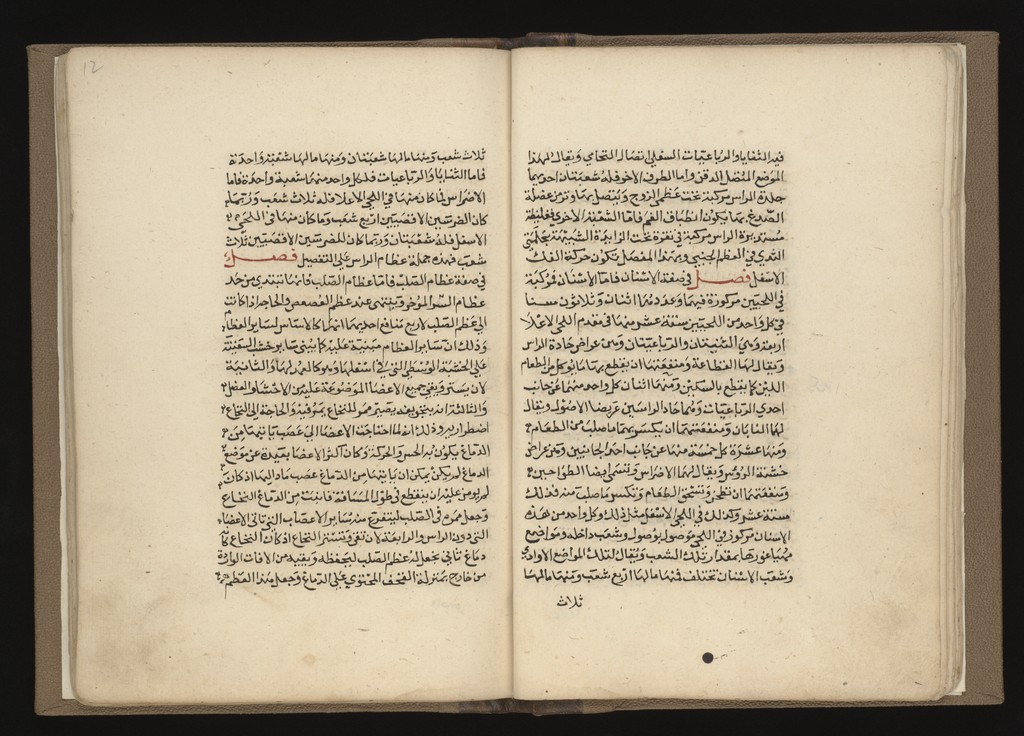 فيه الثنايا والرباعيات السفلي اتصال التحامي ويقال لهذا
الموضع المتصل الدقن واما الطرف الاخر فله شعبتان احديهما
حادة الراس مركبة تحت عظمي الزوج ويتصل بها وتر من عضلة
الصدغ بها يكون انطباق الفم فاما الشعبة الاخري فغليظة
مستديرة الراس مركبة في نقرة تحت الزايدة الشبيهة بحلمتي
الثدي في العظم الحجي وبهذا المفصل تكون حركة الفك
الاسفل فصل في صفة الاسنان فاما الاسنان فمركبة
في اللحيين مركوزة فيهما وعددها اثنان وثلاثون سنا
في كل واحد من اللحيين ستة عشر منها في مقدم اللحي الاعلا
اربعة وهي الثنيتان والرباعيتان وهن عراض حادة الراس
ويقال لها القطاعة ومنفعتها ان يقطع بها ما يوكل من الطعام
اللين كما يقطع بالسكين ومنها اثنان كل واحد منهما عن جانب
احدي الرباعيات وهما حاد الراسين عريضا الاصول ويقال
لهما النابان ومنفعتهما ان يكسر بهما ما صلب من الطعام
ومنها عشرة كل خمسة منها عن جانب احد الجانبين وهن عراض
خشنة الرؤس ويقال لهما الاضراس وتسمي ايضا الطواحين
ومنفعتها ان تطحن وتسحق الطعام وتكسر ما صلب منه فذلك
ستة عشر وكذلك في اللحي الاسفل مثل ذلك وكل واحد من هذه
الاسنان مركوز في اللحي موصول بوصول وشعب داخله ومواضع
مهيا غورها بمقدار تلك الشعب ويقال لتلك المواضع الاواري
وشعب الاسنان تختلف فمنها ما لها اربع شعب ومنها ما لها
ثلاث
12
ثلاث شعب ومنها ما لها شعبتان ومنها ما لها شعبة واحدة
فاما الثنايا والرباعيات فلكل واحد منها شعبة واحدة فاما
الاضراس فما كان منها في اللحي الاعلا فله ثلاث شعب وربما
كان للضرسين الاقصيين اربع شعب وما كان منها في اللحي
الاسفل فله شعبتان وربما كان للضرسين الاقصيين ثلاث
شعب فهذه جملة عظام الراس علي التفصيل فصل
في صفة عظام الصلب فاما عظام الصلب فانها تبتدي من حد
عظام الموخر وينتهي عند عظم العصعص والحاجة كانت
الي عظم الصلب لاربع منافع احديها انها كالاساس لساير العظام
وذلك ان ساير العظام مبنية عليه كما يبني ساير خشب السفينة
علي الخشبة الوسطي التي في اسفلها وهو كالعدل لها والثانية
لان يستر ويقي جميع الاعضا الموضوعة عليه من الاحشا والعضل
والثالثة ان يتخرق فيه يصير ممر للنخاع يمر فيه والحاجة الي النخاع
اضطرارية وذلك انه لما احتاجت الاعضا الي عصب ياتيها من
الدماغ يكون به الحس والحركة وكان اكثر الاعضا بعيدة عن موضع
الدماغ لم يكن يمكن ان ياتيها من الدماغ عصب ماد اليها اذ كان
لم يومن عليه ان ينقطع في طول المسافة فانبت من الدماغ النخاع
وجعل ممره في الصلب ليتفرع منه ساير الاعصاب التي تاتي الاعضا
التي دون الراس والرابعة لان تقي وتستر النخاع اذ كان النخاع كانه
دماغ ثاني يجعل له عظم الصلب ليحفظه ويقيه من الافات الواردة
من خارج بمنزلة القحف المحتوي علي الدماغ وجعل هذا العظم